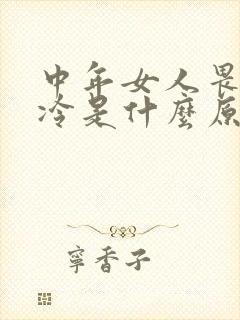 中年女人畏
冷是什麼原
寧香子